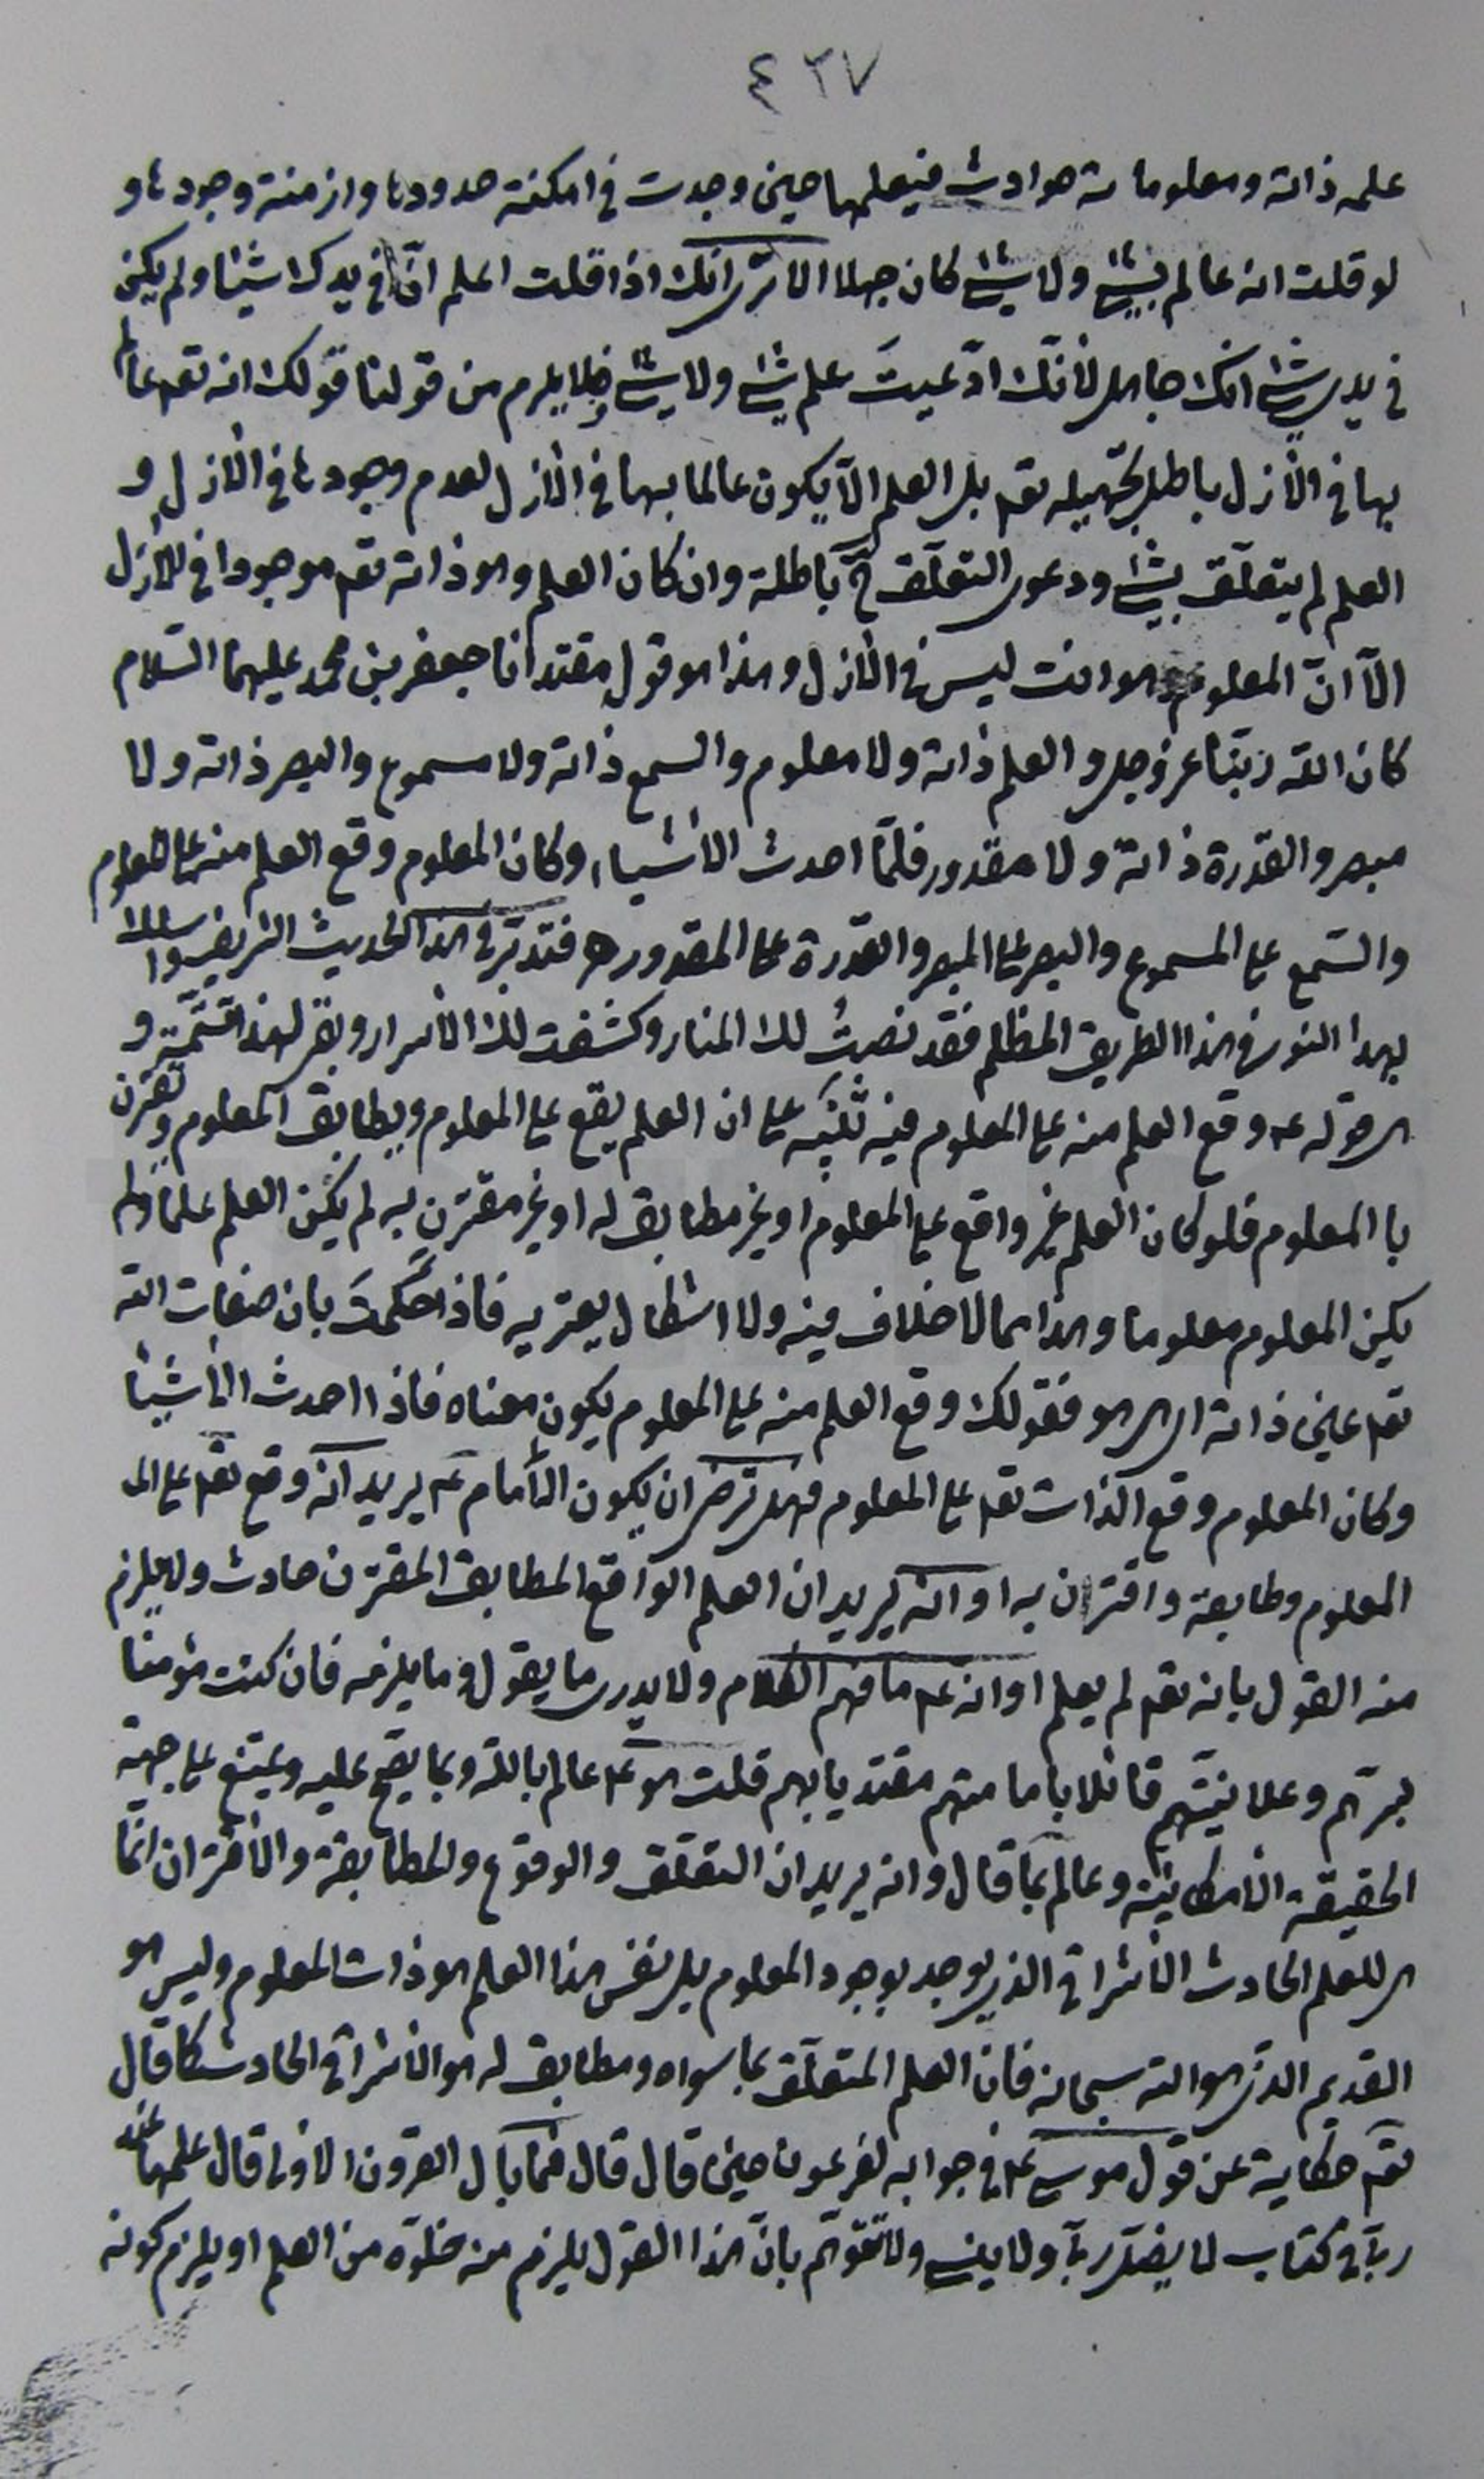 ٤٣٧
علمه ذاته ومعلوماته حوادث فيعلمها حين وجدت في امكنة حدودها وازمنة وجودها و
لو قلت انه عالم بشئ ولا شئ كان جهلا الا ترى انك اذا قلت اعلم انّ في يدك شيئا ولم يكن
في يدي شئ انك جاهل لأنّك ادّعيتَ علم شئ ولا شئ فلا يلزم من قولنا قولك انه تعه عالم
بها في الأزل باطل لتجهيله تعه بل العلم الّا يكون عالما بها في الأزل لعدم وجودها في الأزل و
العلم لم يتعلّق بشئ ودعوى التعلّق ح باطلة وان كان العلم وهو ذاته تعه موجودا في الأزل
الّا انّ المعلوم وهو انت ليس في الأزل وهذا هو قول مقتدانا جعفر بن محمد عليهما السّلام
كان الله ربّنا عز وجل والعلم ذاته ولا معلوم والسمع ذاته ولا مسموع والبصر ذاته ولا
مبصر والقدرة ذاته ولا مقدور فلمّا احدث الأشياء وكان المعلوم وقع العلم منه على المعلوم
والسّمع على المسموع والبصر على المبصر والقدرة على المقدور ه فتدبّر في هذا الحديث الشريف واسلك
بهذا النور في هذا الطريق المظلم فقد نصبتُ لك المنار وكشفت لك الأسرار وبقى لهذا تتمّة و
هي قوله عه وقع العلم منه على المعلوم فيه تنبيه على ان العلم يقع على المعلوم ويطابق المعلوم ويقترن
با المعلوم فلو كان العلم غير واقع على المعلوم او غير مطابق له او غير مقترن به لم يكن العلم علما ولم
يكن المعلوم معلوما وهذا مما لا خلاف فيه ولا اشكال يعتريه فاذا حكمتَ بان صفات الله
تعه عين ذاته اى هي هو فقولك وقع العلم منه على المعلوم يكون معناه فاذا احدث الأشيأ
وكان المعلوم وقع الذات تعه على المعلوم فهل ترضى ان يكون الأمام عه يريد انّه وقع تعه على الـ
المعلوم وطابقه واقترن به او انّه يريد ان العلم الواقع المطابق المقترن حادث ولا يلزم
منه القول بانه تعه لم يعلم او انه عه ما فهم الكلام ولا يدرى ما يقول وما يلزمه فان كنت مؤمنا
بسرّهم وعلانيتهم قائلا بامامتهم مقتديا بهم قلت هو عه عالم بالله وبما يصحّ عليه ويمتنع على جهة
الحقيقة الأمكانيّة وعالم بما قال وانه يريد ان التعلّق والوقوع والمطابقة والأقتران انّما
هي للعلم الحادث الأشراقى الذي يوجد بوجود المعلوم بل نفس هذا العلم هو ذات المعلوم وليس هو
القديم الذى هو الله سبحانه فان العلم المتعلّق بما سواه ومطابق له هو الأشراقى الحادث كما قال
تعه حكاية عن قول موسى عه في جوابه لفرعون حين قال قال فما بال القرون الاولى قال علمها عند
ربّى في كتاب لا يضلّ ربّى ولا ينسى ولا تتوهّم بانّ هذا القول يلزم منه خلوّه من العلم او يلزم كونه